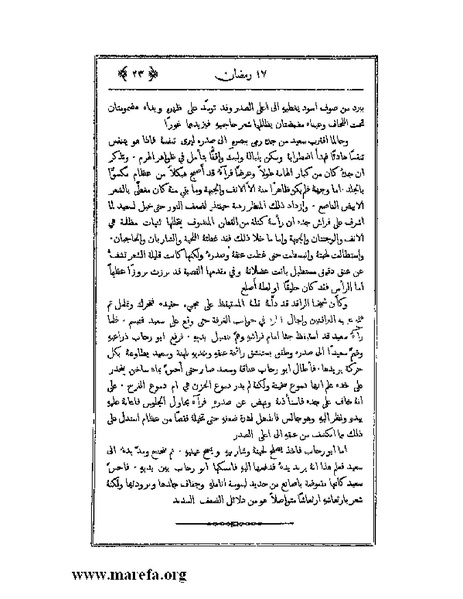 ١٧ رمضان
﴿ ٢٣ ﴾
ببرد من صوف اسود يغطيه الى اعلى الصدر وقد توسد على ظهره ويداه مضمومتان
تحت اللحاف وعيناه مغمضتان يظللهما شعر حاجبيه فيزيدهما غورًا
وحالما اقترب سعيد من جده رمى ببصره الى صدره ليرى تنفسه فاذا هو يتنفس
تنفسًا هادئًا فهدأ اضطرابه وسكن بلباله ولبث واقفًا يتأمل في ظواهر الهرم . وتذكر
ان جده كان من كبار الهامة طولًا وعرضًا فرآه قد أصبح هيكلًا من عظام مكسوًّا
بالجلد . اما وجهه فلم يكن ظاهرًا منه الا الانف والجبهة وما بقي منه كان مغطى بالشعر
الابيض الناصع . وازداد ذلك المنظر رهبة حينئذٍ لضعف النور حتى خيل لسعيد لما
اشرف على فراش جده ان رأسه كتلة من القطن المندوف يتخللها ثنيات مظلمة هي
الانف والوجنتان والجبهة واما ما خلا ذلك فقد غطته اللحية والشاربان والحاجبان .
واستطالت لحيته واتسعت حتى غطت عنقه وصدره ولكنها كانت قليلة الشعر تشف
عن عنق دقيق مستطيل بانت عضلاته وفي مقدمها القصبة قد برزت بروزًا عظيمًا
اما الرأس فقد كان حليقًا او لعله أصلع
وكأن شيخنا الراقد قد دلّه قلبه المستيقظ على مجيء حفيده فتحرك وتململ ثم
فتح عينيه الغائرتين واجال في جوانب الغرفة حتى وقع على سعيد فتبسم . فلما
رآه سعيد قد استيقظ جثا امام فراشه وهمّ بتقبيل يديه . فرفع ابو رحاب ذراعيه
وضمّ سعيدًا الى صدره وطفق يستنشق رائحة عنقه وخديه بلهفة وسعيد يطاوعه بكل
حركة يريدها . فأطال ابو رحاب عناقه وسعيد صابر حتى أحس بماء ساخن ينحدر
على خده علم انها دموع سخينة ولكنه لم يدر دموع الحزن هي ام دموع الفرح . على
انه خاف على جده فاستأذنه ونهض عن صدره فرآه يحاول الجلوس فاعانه عليه
بيده ونظر اليه وهو جالس فأذهله لشدة ضعفه حتى تخيله قفصًا من عظام استدل على
ذلك مما انكشف من عنقه الى اعلى الصدر
اما ابو رحاب فاخذ يصلح لحيته وشاربيه ويمسح عينيه . ثم تنحنح ومدّ يده الى
سعيد فعلم هذا انه يريد يده فدفعها اليه فامسكها ابو رحاب بين يديه . فاحس
سعيد كأنها مقبوضة باصابع من حديد ليبوسة انامله وجفاف جلدها وبرودتها ولكنه
شعر بارتعاشها ارتعاشًا متواصلًا هو من دلائل الضعف الشديد
www.marefa.org